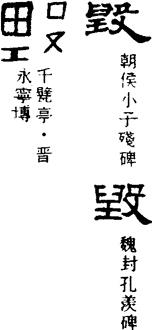 毀
朝侯小子殘碑
毀
魏封孔羨碑
千甓亭·晋
永寧塼